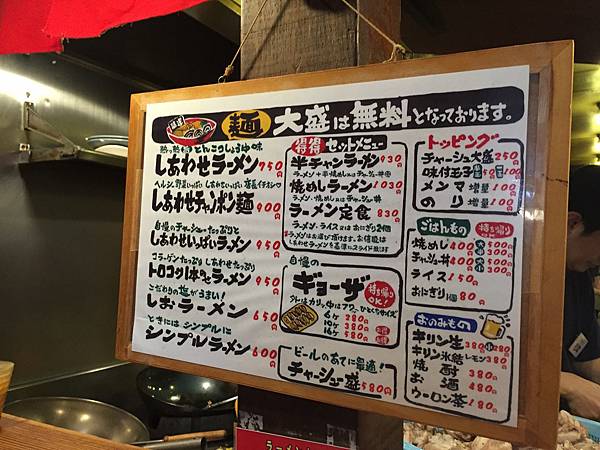 麺 大盛は無料となっております。
熱っ熱のとんこつしょうゆ味
しあわせラーメン 750円
ヘルシー野菜いっぱいしあわせいっぱい店長イチオシ
しあわせチャンポン麺 900円
自慢のチャーシューたっぷりと
しあわせいっぱいラーメン 950円
コラーゲンたっぷりしあわせたっぷり
トロコツ1本のせラーメン 950円
こだわりの塩がうまい!
しおラーメン 650円
ときにはシンプルに
シンプルラーメン 600円
得得 セットメニュー
半チャンラーメン 930円
焼めしラーメン 1030円
ラーメン・焼めし又はチャーシュー丼
ラーメン定食 830円
ラーメン・ライス又はおにぎり2個
自慢の
ギョーザ
持ち帰りOK!
外はカリッ、中はフワッひとくちサイズ
6ヶ 280円
10ヶ 380円
16ヶ 580円
ビールのあてに最適!
チャーシュー盛 580円
トッピング
チャーシュー大盛 250円
味付玉子 100円
メンマ 増量 100円
のり 増量 100円
ごはんもの
焼めし 大 500円 小 400円
チャーシュー丼 大 500円 小 400円
ライス 150円
おにぎり 1個 80円
おのみもの
キリン生 380円 小 280円
キリン氷結 レモン 380円
焼酎 380円
お酒 480円
ウーロン茶 180円
ラーメン